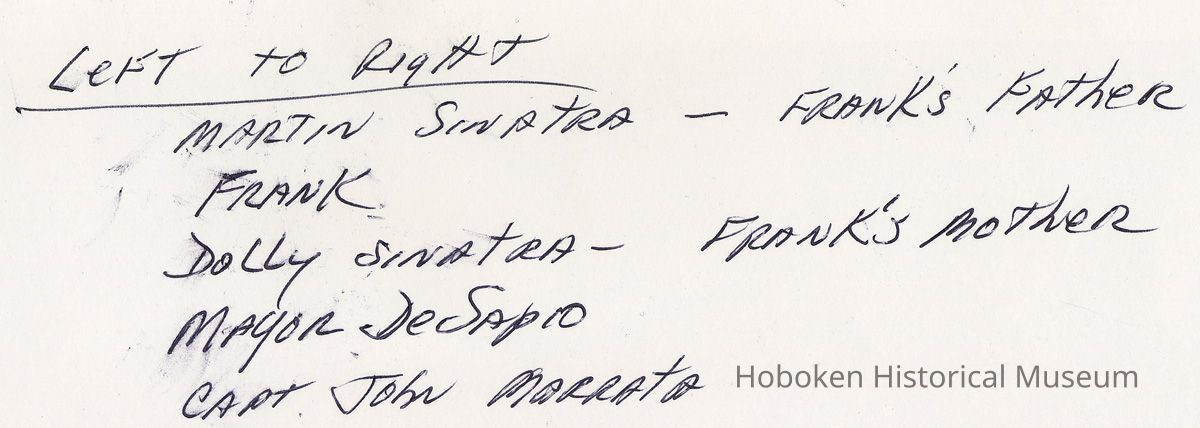 Left to Right
Martin Sinatra — Frank's Father
Frank
Dolly Sinatra — Frank's Mother
Mayor DeSapio
Capt. John Marrata
Hoboken Historical Museum